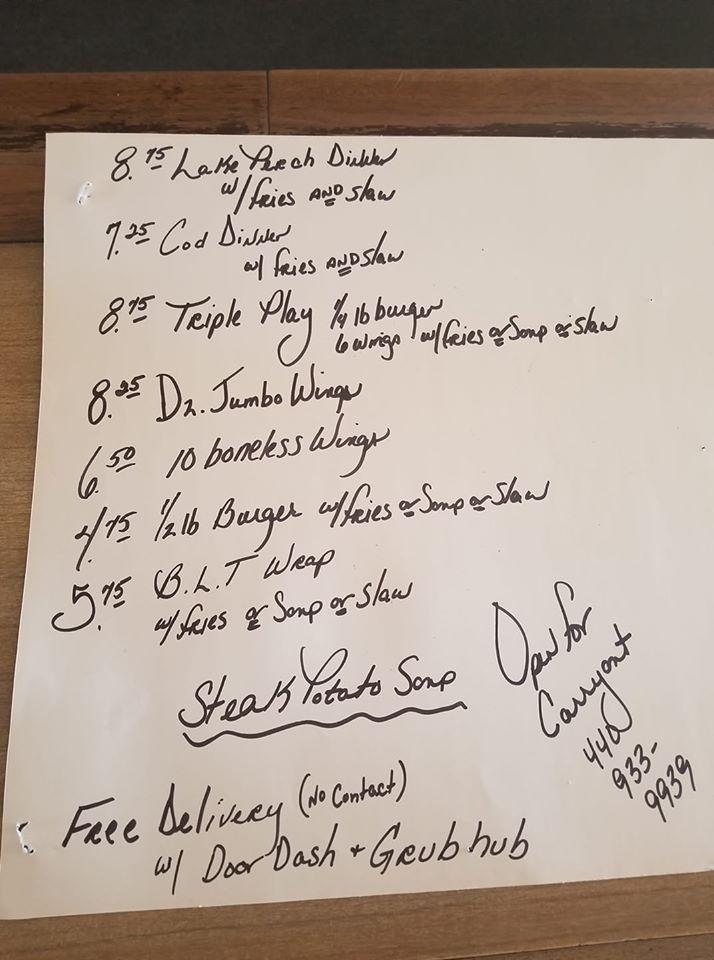 8.75 Lake Perch Dinner
w/ fries AND Slaw
7.25 Cod Dinner
w/ fries AND Slaw
8.75 Triple Play 1/4 lb burger
6 wings w/ fries or Soup or Slaw
8.25 Dz. Jumbo Wings
6.50 10 boneless Wings
4.75 1/2 lb Burger w/ fries or Soup or Slaw
5.75 B.L.T Wrap
w/ fries or Soup or Slaw
Steak Potato Soup
Open for
Carryout
440
933-
9939
Free Delivery (No Contact)
w/ Door Dash + Grubhub